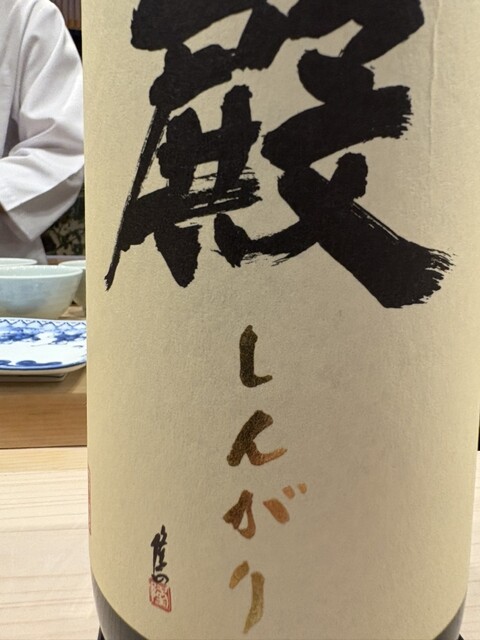 殿
しんがり